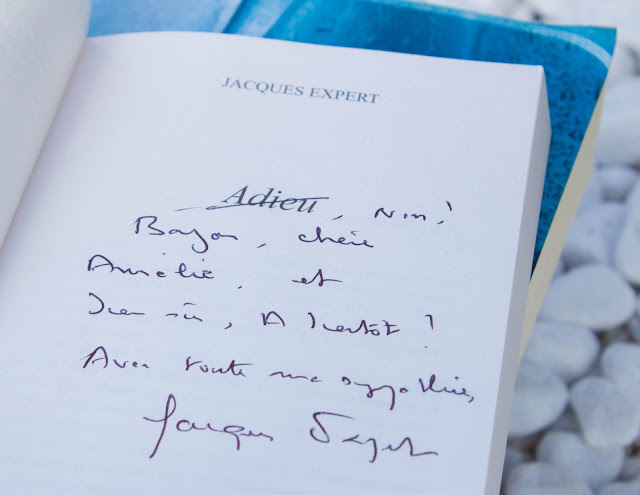 JACQUES EXPERT
Adieu, Non!
Bonjour, chère
Amélie, et
bien sûr, A bientôt!
Avec toute ma sympathie,
Jacques Expert